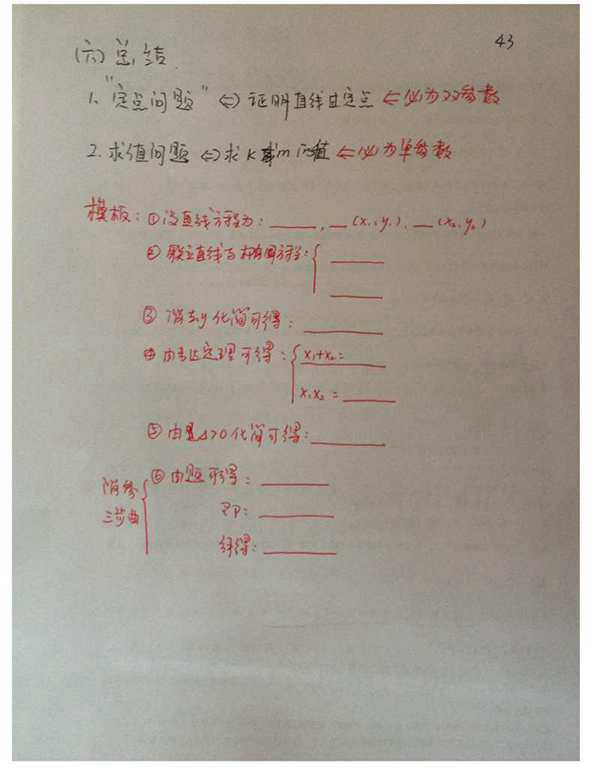 43
(六) 总结
1. "定点问题" ⇔ 证明直线过定点 ⇐ 必为双参数
2. 求值问题 ⇔ 求k或m的值 ⇐ 必为单参数
模板: ① 设直线方程为: ____, __(x₁,y₁), __(x₂,y₂)
② 联立直线与椭圆方程: { ____
____
③ 消去y化简可得: ____
④ 由韦达定理可得: { x₁+x₂= ____
x₁x₂ = ____
⑤ 由△>0化简可得: ____
消参三步曲 { ⑥ 由题可得: ____
即: ____
解得: ____